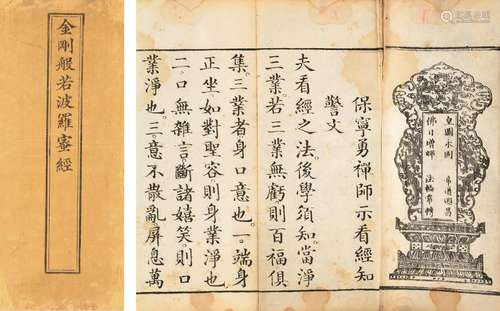 金剛般若波羅蜜經
皇圖永固 帝道遐昌
佛日增輝 法輪常轉
保寧勇禪師示看經知
警文
夫看經之法後學須知當淨
三業若三業無虧則百福俱
集。三業者身口意也。一。端身
正坐如對聖容則身業淨也
二。口無雜言斷諸嬉笑。則口
業淨也。三。意不散亂屏息萬